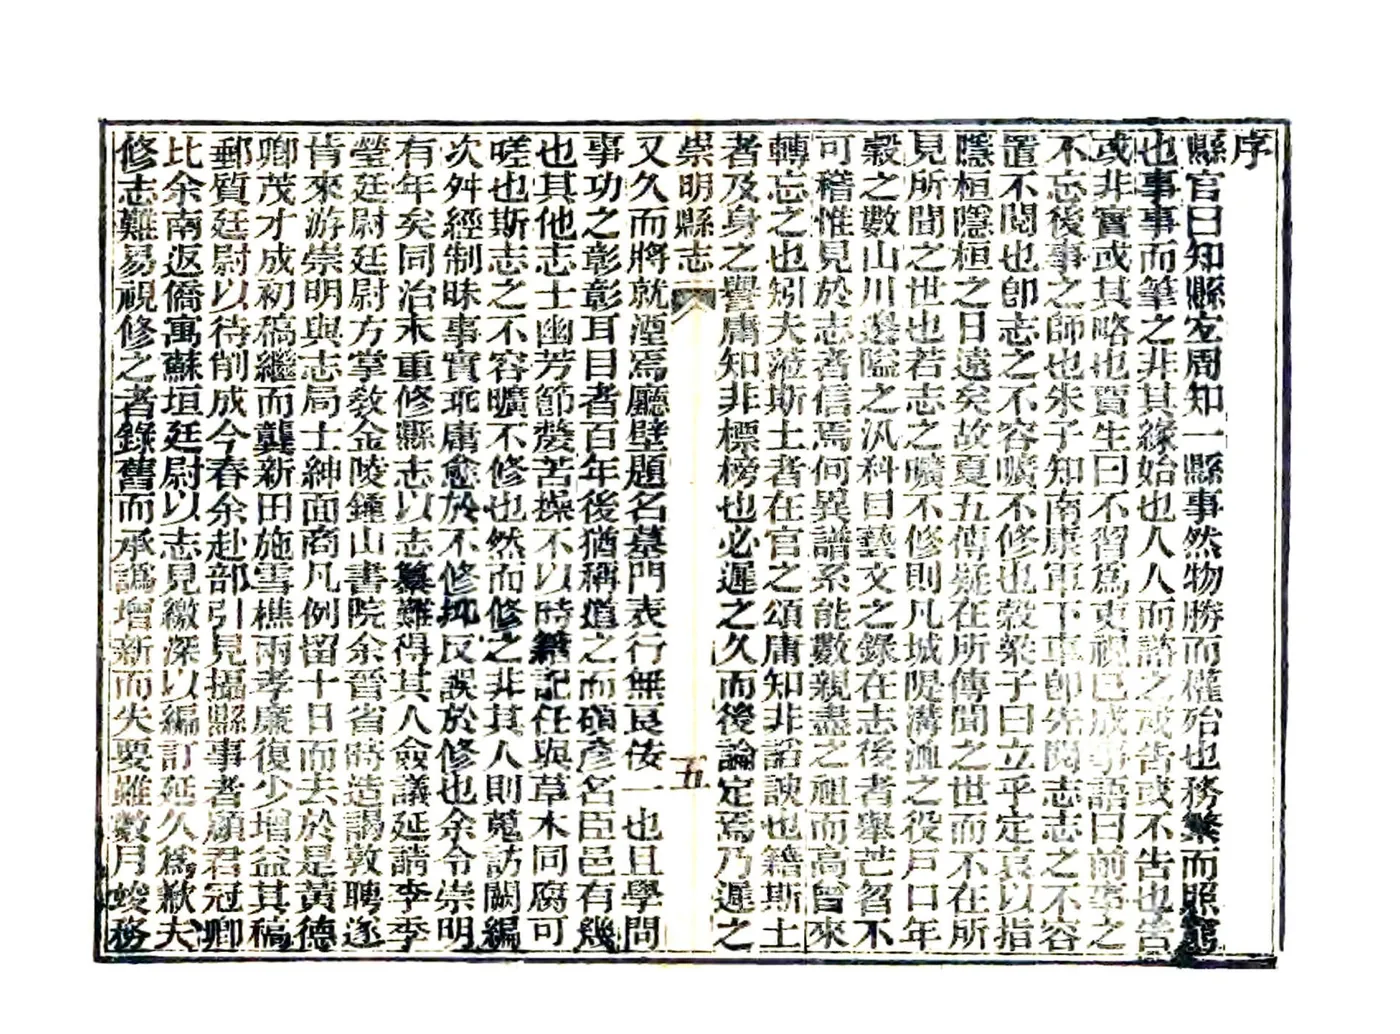 序
縣官曰知縣左周知一縣事然物勝而權殆也務繁而照
也事事而筆之非其緣始也人人而諮之或告或不告也告
或非實或其略也賈生曰不習為吏視已成事語曰前事之
不忘後事之師也朱子知南康軍下車即先閱志志之不容
置不閱也卽志之不容曠不修也穀梁子曰立乎定哀以指
隱桓隱桓之日遠矣故夏五傳疑在所傳聞之世而不在所
見所聞之世也若志之曠不修則凡城隄溝洫之役戶口年
穀之數山川邊隘之汛科目藝文之錄在志後者舉芒曶不
可稽惟見於志者信焉何異譜系能數親盡之祖而高曾來
轉忘之也矧夫涖斯土者在官之頌庸知非諂諛也籍斯土
者及身之譽庸知非標榜也必遲之久而後論定焉乃遲之
崇明縣志
五
又久而將就湮焉廳壁題名墓門表行無良佞一也且學問
事功之彰彰耳目者百年後猶稱道之而碩彥名臣邑有幾
也其他志士幽芳節嫠苦操不以時籍記任與草木同腐可
嗟也斯志之不容曠不修也然而修之非其人則蒐訪闕編
次舛經制昧事實乖庸愈於不修抑反誤於修也余令崇明
有年矣同治末重修縣志以志纂難得其人僉議延請李季
瑩廷尉廷尉方掌敎金陵鍾山書院余晉省時造謁敦聘遂
肯來游崇明與志局士紳面商凡例留十日而去於是黃德
卿茂才成初稿繼而龔新田施雪樵兩孝廉復少增益其稿
郵質廷尉以待削成今春余赴部引見攝縣事者顏君冠卿
比余南返僑寓蘇垣廷尉以志見繳深以編訂延久爲歉夫
修志難易視修之者錄舊而承譌增新而失要雖數月竣務